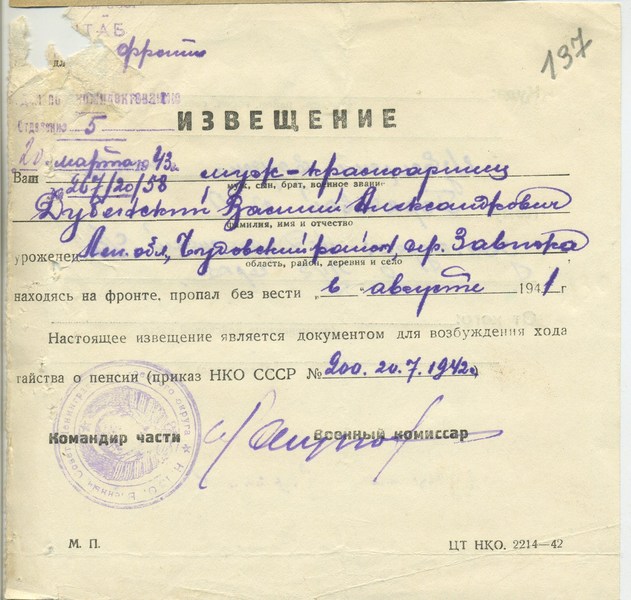 137
ШТАБ
фронта
Отдел по комплектованию
Отделение 5
ИЗВЕЩЕНИЕ
20 марта 1943 г.
№ 267/20/58
Ваш муж - красноармеец
муж, сын, брат, военное звание
Василий Александрович
фамилия, имя и отчество
уроженец Лен. обл., Чудовский район, гр.
область, район, деревня и село
находясь на фронте, пропал без вести „в“ августе 1941 г
Настоящее извещение является документом для возбуждения хода
тайства о пенсии (приказ НКО СССР № 200. 20.7.1942 г.
Командир части
Военный комиссар
М. П.
ЦТ НКО. 2214—42